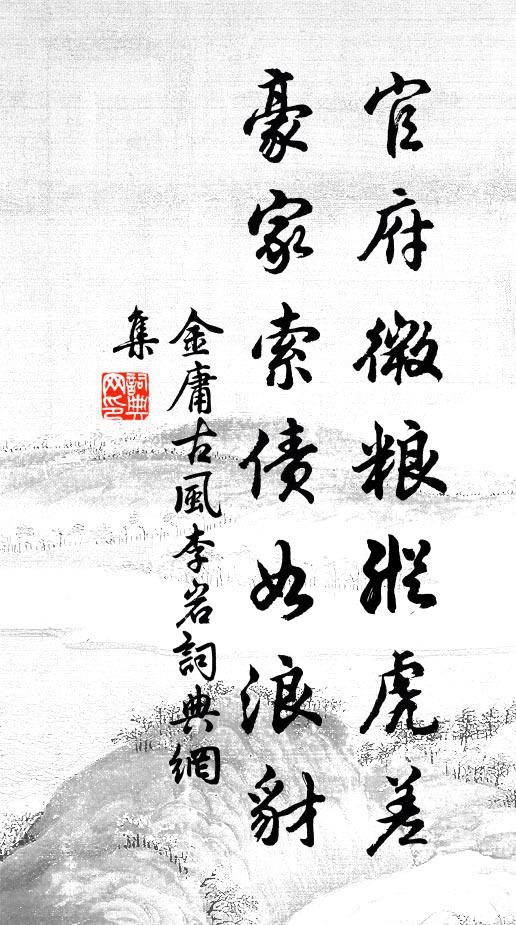 官府徵粮縱虎差
豪家索债如浪豺
金庸古風李岩詞典網
集
詞典網印